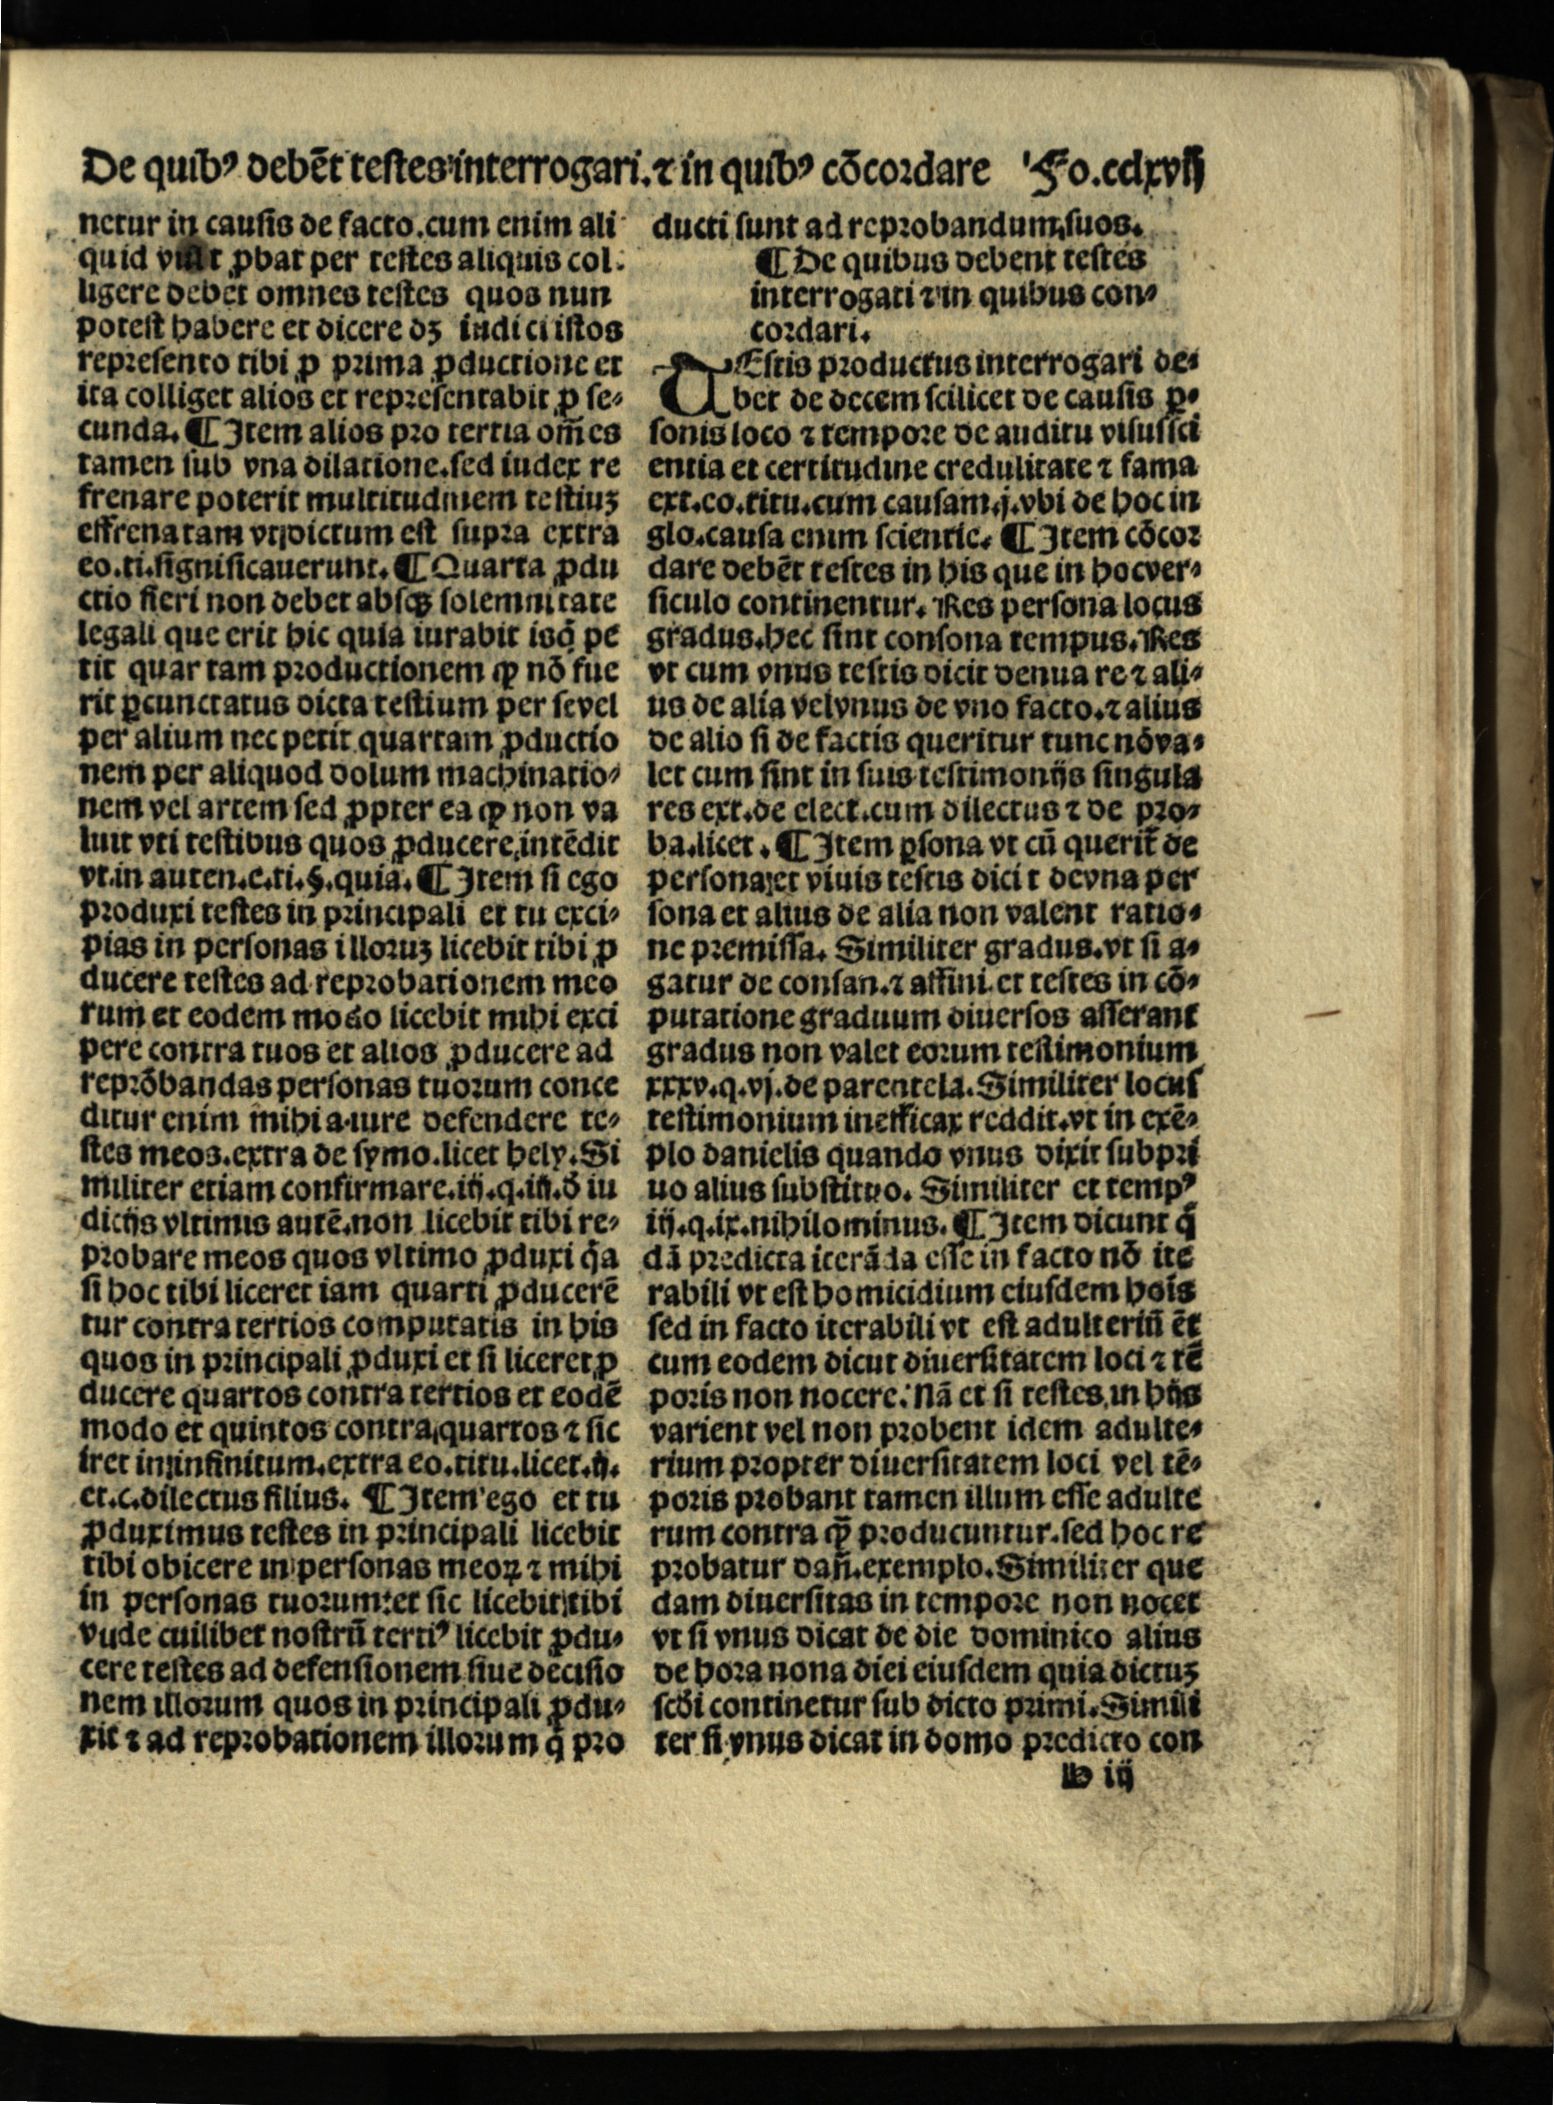 De quibꝰ debẽt testes interrogari.⁊ in quibꝰ cõcordare Fo.cdxvij
netur in causis de facto.cum enim ali
quid vult ꝓbat per testes aliquis col.
ligere debet omnes testes quos nun
potest habere et dicere dꝫ iudici istos
represento tibi ꝓ prima ꝓductione et
ita colliget alios et representabit ꝓ se⸗
cunda. ¶ Item alios pro tertia om̃es
tamen sub vna dilatione.sed iudex re
frenare poterit multitudinem testiuꝫ
effrenatam vt dictum est supra extra
eo.ti.significauerunt. ¶ Quarta ꝓdu
ctio fieri non debet absqꝫ solemnitate
legali que erit hic quia iurabit is q̃ pe
tit quar tam productionem ꝙ nõ fue
rit ꝑcunctatus dicta testium per se vel
per alium nec petit quartam ꝓductio
nem per aliquod dolum machinatio⸗
nem vel artem sed ꝓpter ea ꝙ non va
luit vti testibus quos ꝓducere intẽdit
vt.in auten.e.ti.§.quia. ¶ Item si ego
produxi testes in principali et tu exci⸗
pias in personas illoruꝫ licebit tibi ꝓ
ducere testes ad reprobationem meo
rum et eodem modo licebit mihi exci
pere contra tuos et alios ꝓducere ad
reprõbandas personas tuorum conce
ditur enim mihi a iure defendere te⸗
stes meos.extra de symo.licet hely. Si
militer etiam confirmare.iij.q.iij.δ iu
dicijs vltimis autẽ.non licebit tibi re⸗
probare meos quos vltimo ꝓduxi q̃a
si hoc tibi liceret iam quarti ꝓducerẽ
tur contra tertios computatis in his
quos in principali ꝓduxi et si liceret ꝓ
ducere quartos contra tertios et eodẽ
modo et quintos contra quartos ⁊ sic
iret in infinitum.extra eo.titu.licet.ij.
et.c.dilectus filius. ¶ Item ego et tu
ꝓduximus testes in principali licebit
tibi obicere in personas meoꝝ ⁊ mihi
in personas tuorum:et sic licebit tibi
vude cuilibet nostrũ tertiꝰ licebit ꝓdu⸗
cere testes ad defensionem siue decisio
nem illorum quos in principali ꝓdu⸗
xit ⁊ ad reprobationem illorum q̃ pro
ducti sunt ad reprobandum suos.
¶ De quibus debent testes
interrogati ⁊ in quibus con⸗
cordari.
TEstis productus interrogari de⸗
bet de decem scilicet de causis ꝑ⸗
sonis loco ⁊ tempore de auditu visu sci
entia et certitudine credulitate ⁊ fama
ext.eo.titu.cum causam.j.vbi de hoc in
glo.causa enim scientie. ¶ Item cõcor
dare debẽt testes in his que in hoc ver⸗
siculo continentur. Res persona locus
gradus.hec sint consona tempus. Res
vt cum vnus testis dicit de nua re ⁊ ali⸗
us de alia vel vnus de vno facto.⁊ alius
de alio si de factis queritur tunc nõ va⸗
let cum sint in suis testimonijs singula
res ext.de elect.cum dilectus ⁊ de pro⸗
ba.licet. ¶ Item ꝑsona vt cũ querit̃ de
persona et viuis testis dicit de vna per
sona et alius de alia non valent ratio⸗
ne premissa. Similiter gradus.vt si a⸗
gatur de consan.⁊ affini.et testes in cõ⸗
putatione graduum diuersos asserant
gradus non valet eorum testimonium
xxxv.q.vj.de parentela. Similiter locus
testimonium inefficax reddit.vt in exẽ⸗
plo danielis quando vnus dixit sub pri
uo alius sub stituo. Similiter et tempꝰ
iij.q.ix.nihilominus. ¶ Item dicunt q̃
dã predicta iterãda esse in facto nõ ite
rabili vt est homicidium eiusdem hoĩs
sed in facto iterabili vt est adulteriũ ẽt
cum eodem dicut diuersitatem loci ⁊ tẽ
poris non nocere. Nã et si testes in hijs
varient vel non probent idem adulte⸗
rium propter diuersitatem loci vel tẽ⸗
poris probant tamen illum esse adulte
rum contra quẽ producuntur.sed hoc re
probatur dañ.exemplo. Similiter que
dam diuersitas in tempore non nocet
vt si vnus dicat de die dominico alius
de hora nona diei eiusdem quia dictuꝫ
scδi continetur sub dicto primi. Simili
ter si vnus dicat in domo predicto con
lb iij